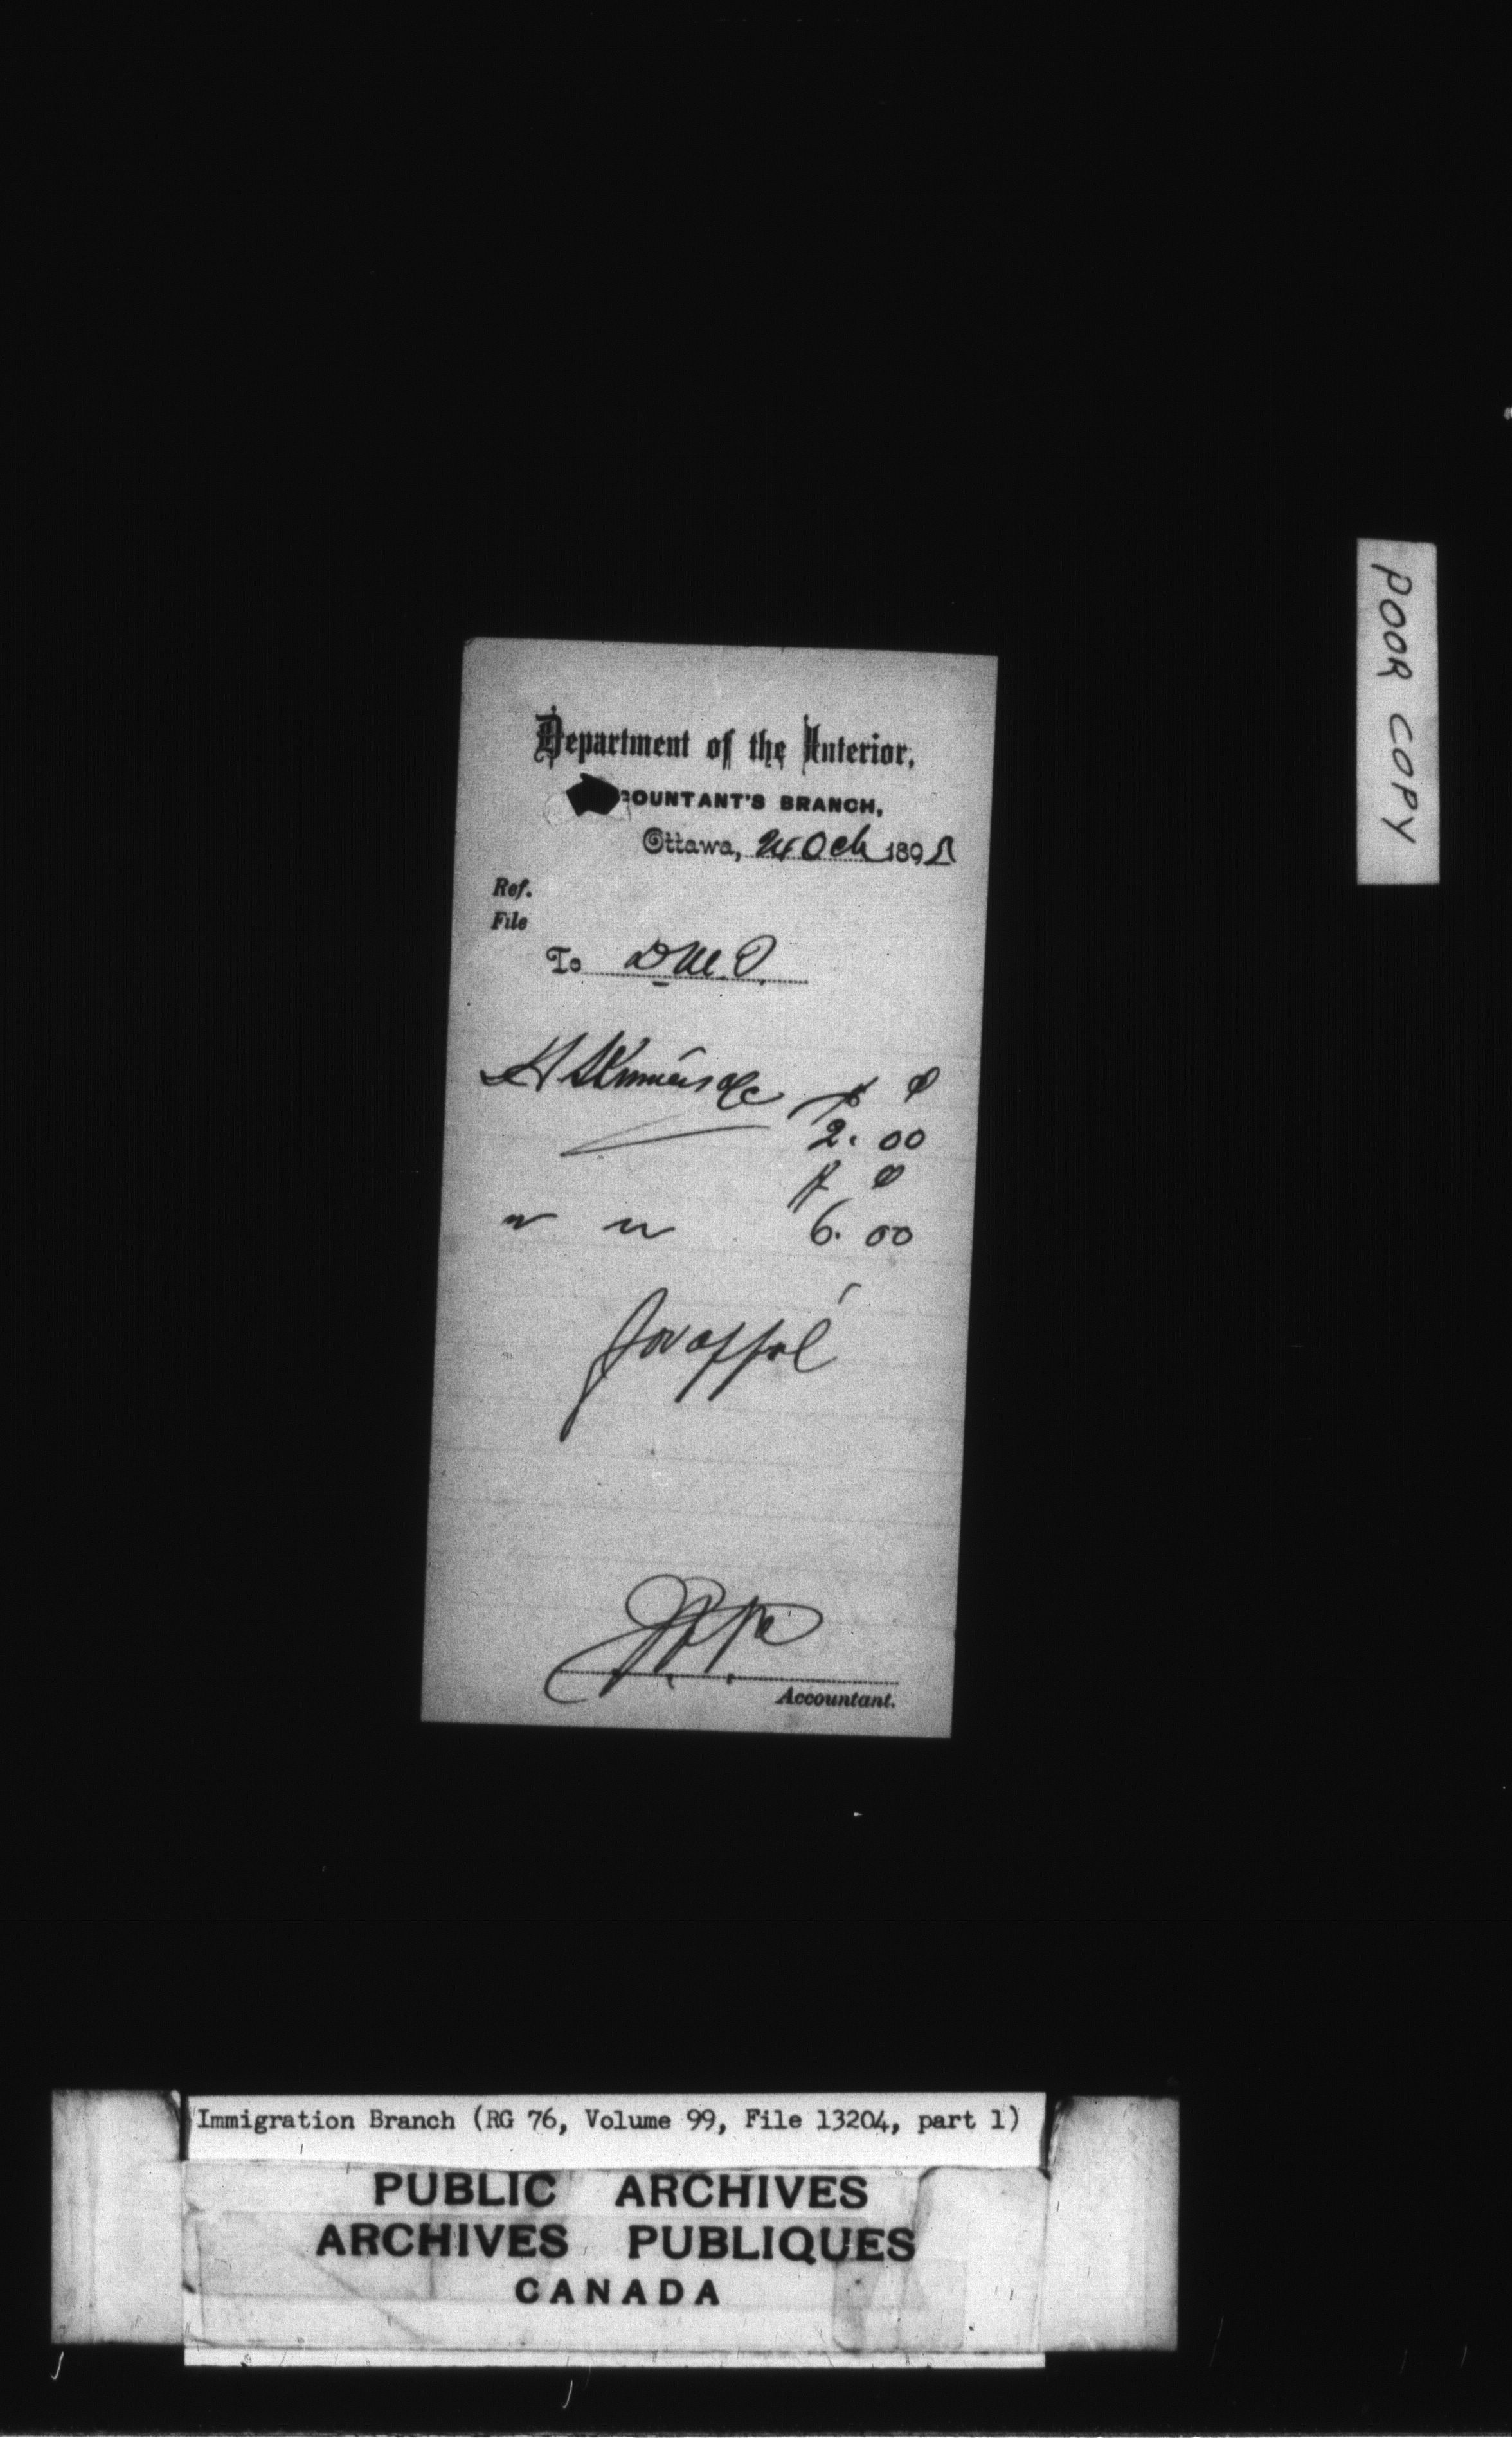 Department of the Interior,
COUNTANT'S BRANCH,
Ottawa, 24 Oct 189
Ref.
File
To D.M.I.
2.00
6.00
for app'l
Accountant.
POOR COPY
Immigration Branch (RG 76, Volume 99, File 13204, part 1)
PUBLIC ARCHIVES
ARCHIVES PUBLIQUES
CANADA